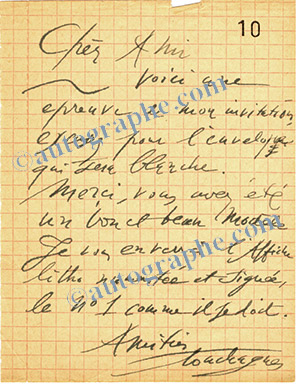 10
Cher Ami
voici une
epreuve de mon invitation
pour l'enveloppe
qui sera blanche.
Merci, vous avez été
un bon et beau Modèle
Je vous enverrai l'Affiche
litho numérotée et signée,
le N° 1 comme il se doit.
Amitiés
Touchagues
©autographe.com
©autographe.com
©autographe.com